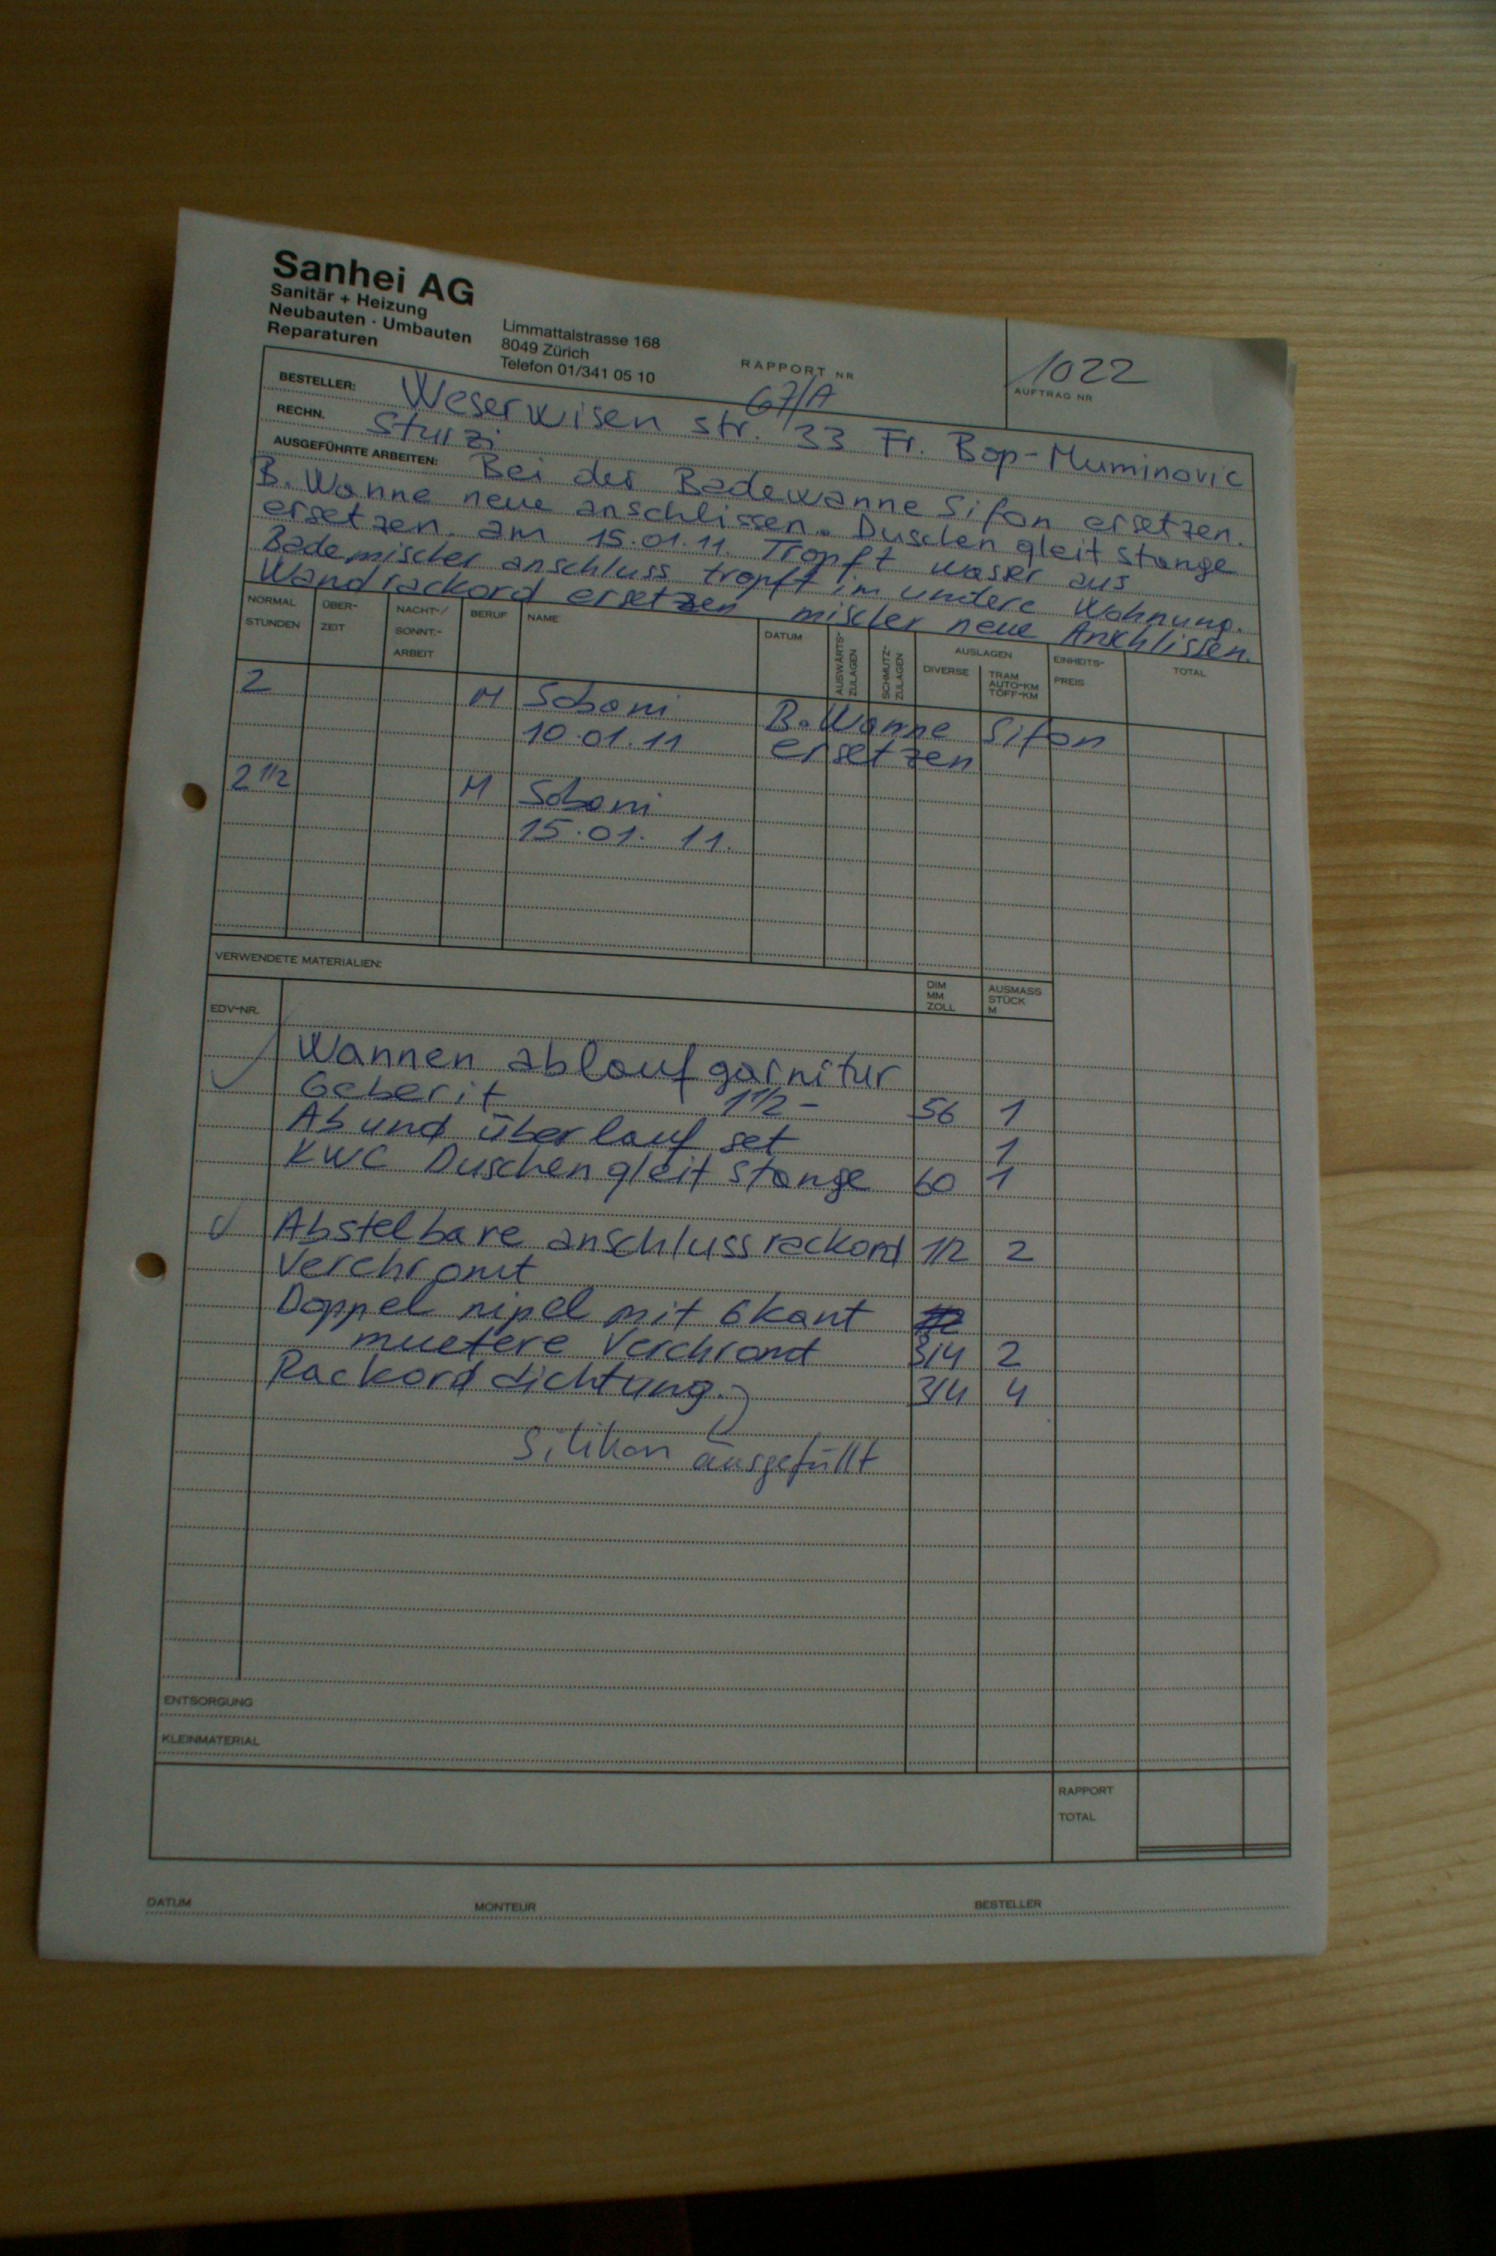 Sanhei AG
Sanitär + Heizung
Neubauten · Umbauten
Reparaturen
Limmattalstrasse 168
8049 Zürich
Telefon 01/341 05 10
RAPPORT NR
67/A
1022
AUFTRAG NR
BESTELLER: Weserwisen str. 33 Fr. Bop-Muminovic
RECHN. Sturzi
AUSGEFÜHRTE ARBEITEN: Bei der Badewanne Sifon ersetzen.
B. Wanne neue anschlissen. Duschen gleit stange
ersetzen. am 15.01.11. Tropft waser aus
Bademischer anschluss tropft im undere Wohnung.
Wandrackord ersetzen mischer neue Anschlissen.
NORMAL STUNDEN ÜBER- ZEIT NACHT-/ SONNT.- ARBEIT BERUF NAME DATUM AUSWÄRTS- ZULAGEN SCHMUTZ- ZULAGEN AUSLAGEN DIVERSE TRAM AUTO-KM TÖFF-KM EINHEITS- PREIS TOTAL
2 M Sobani B. Wanne Sifon
10.01.11 ersetzen
2 1/2 M Sobani
15.01. 11.
VERWENDETE MATERIALIEN:
EDV-NR. DIM MM ZOLL AUSMASS STÜCK M
Wannen ablauf garnitur
Geberit 1 1/2 - 56 1
Ab und überlauf set 1
KWC Duschengleit stange 60 1
Abstelbare anschluss rackord 1/2 2
Verchromt
Doppel nipel mit 6kant
muetere Verchromt 3/4 2
Rackord dichtung. 3/4 4
Silikon ausgefüllt
ENTSORGUNG
KLEINMATERIAL
RAPPORT
TOTAL
DATUM MONTEUR BESTELLER